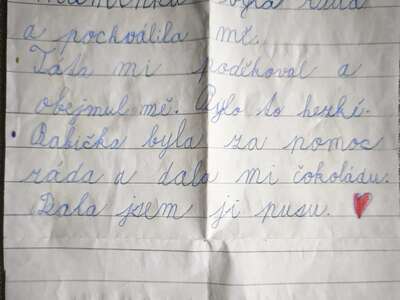 Maminka byla ráda
a pochválila mě.
Táta mi poděkoval a
obejmul mě. Bylo to hezké.
Babička byla za pomoc
ráda a dala mi čokoládu.
Dala jsem ji pusu.